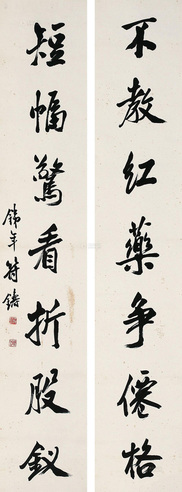 不教红藥争僊格
短幅驚看折股釵
符鑄